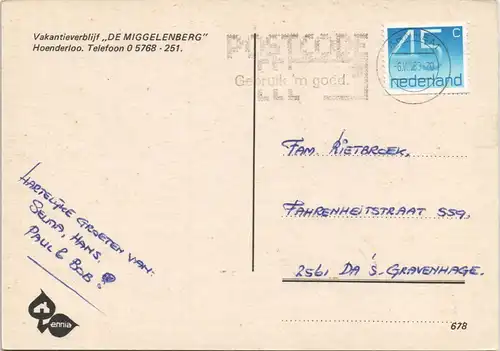 Vakantieverblijf „DE MIGGELENBERG"
Hoenderloo. Telefoon 0 5768 - 251.
POSTCODE
Gebruik 'm goed.
45 c
nederland
HARTELIJKE GROETEN VAN:
SELMA, HANS,
PAUL & BOB!
FAM. RIETBROEK.
FAHRENHEITSTRAAT 559.
2561 DA 'S-GRAVENHAGE.
ennia
678